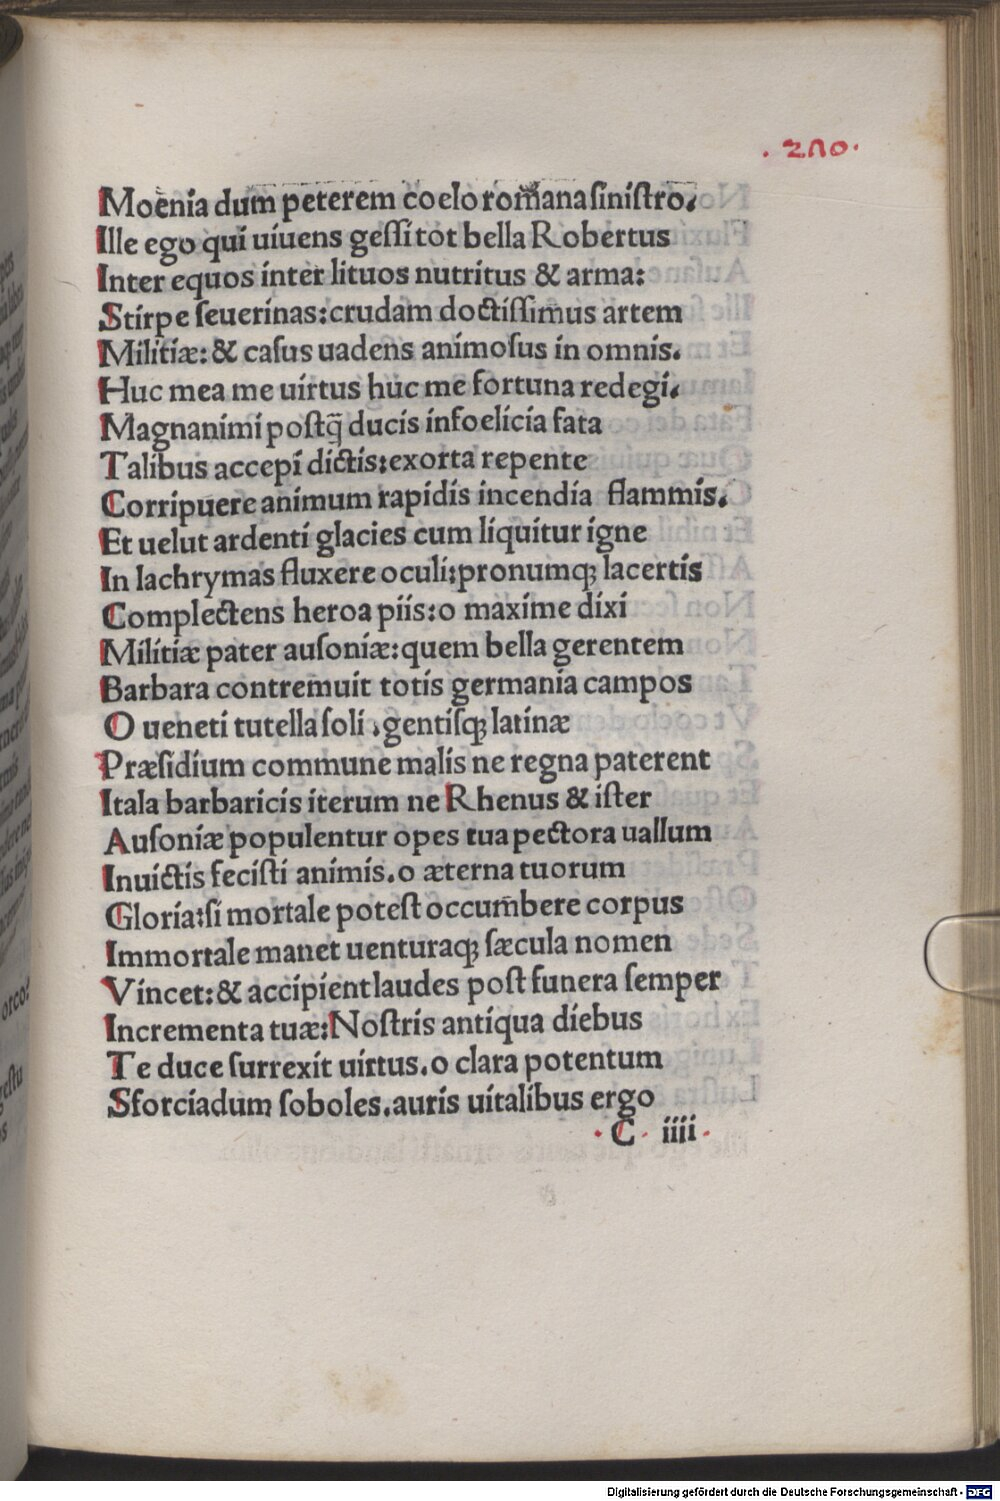 . 210 .
Moenia dum peterem coelo romana sinistro.
Ille ego qui uiuens gessi tot bella Robertus
Inter equos inter lituos nutritus & arma:
Stirpe seuerinas: crudam doctissimus artem
Militiæ: & casus uadens animosus in omnis.
Huc mea me uirtus huc me fortuna redegi.
Magnanimi postq̄ ducis infoelicia fata
Talibus accepi dictis: exorta repente
Corripuere animum rapidis incendia flammis.
Et uelut ardenti glacies cum liquitur igne
In lachrymas fluxere oculi: pronumq; lacertis
Complectens heroa piis: o maxime dixi
Militiæ pater ausoniæ: quem bella gerentem
Barbara contremuit totis germania campos
O ueneti tutella soli, gentisq; latinæ
Præsidium commune malis ne regna paterent
Itala barbaricis iterum ne Rhenus & ister
Ausoniæ populentur opes tua pectora uallum
Inuictis fecisti animis. o æterna tuorum
Gloria: si mortale potest occumbere corpus
Immortale manet uenturaq; sæcula nomen
Vincet: & accipient laudes post funera semper
Incrementa tuæ: Nostris antiqua diebus
Te duce surrexit uirtus. o clara potentum
Sforciadum soboles. auris uitalibus ergo
. C . iiii .
orco:
Digitalisierung gefördert durch die Deutsche Forschungsgemeinschaft - DFG